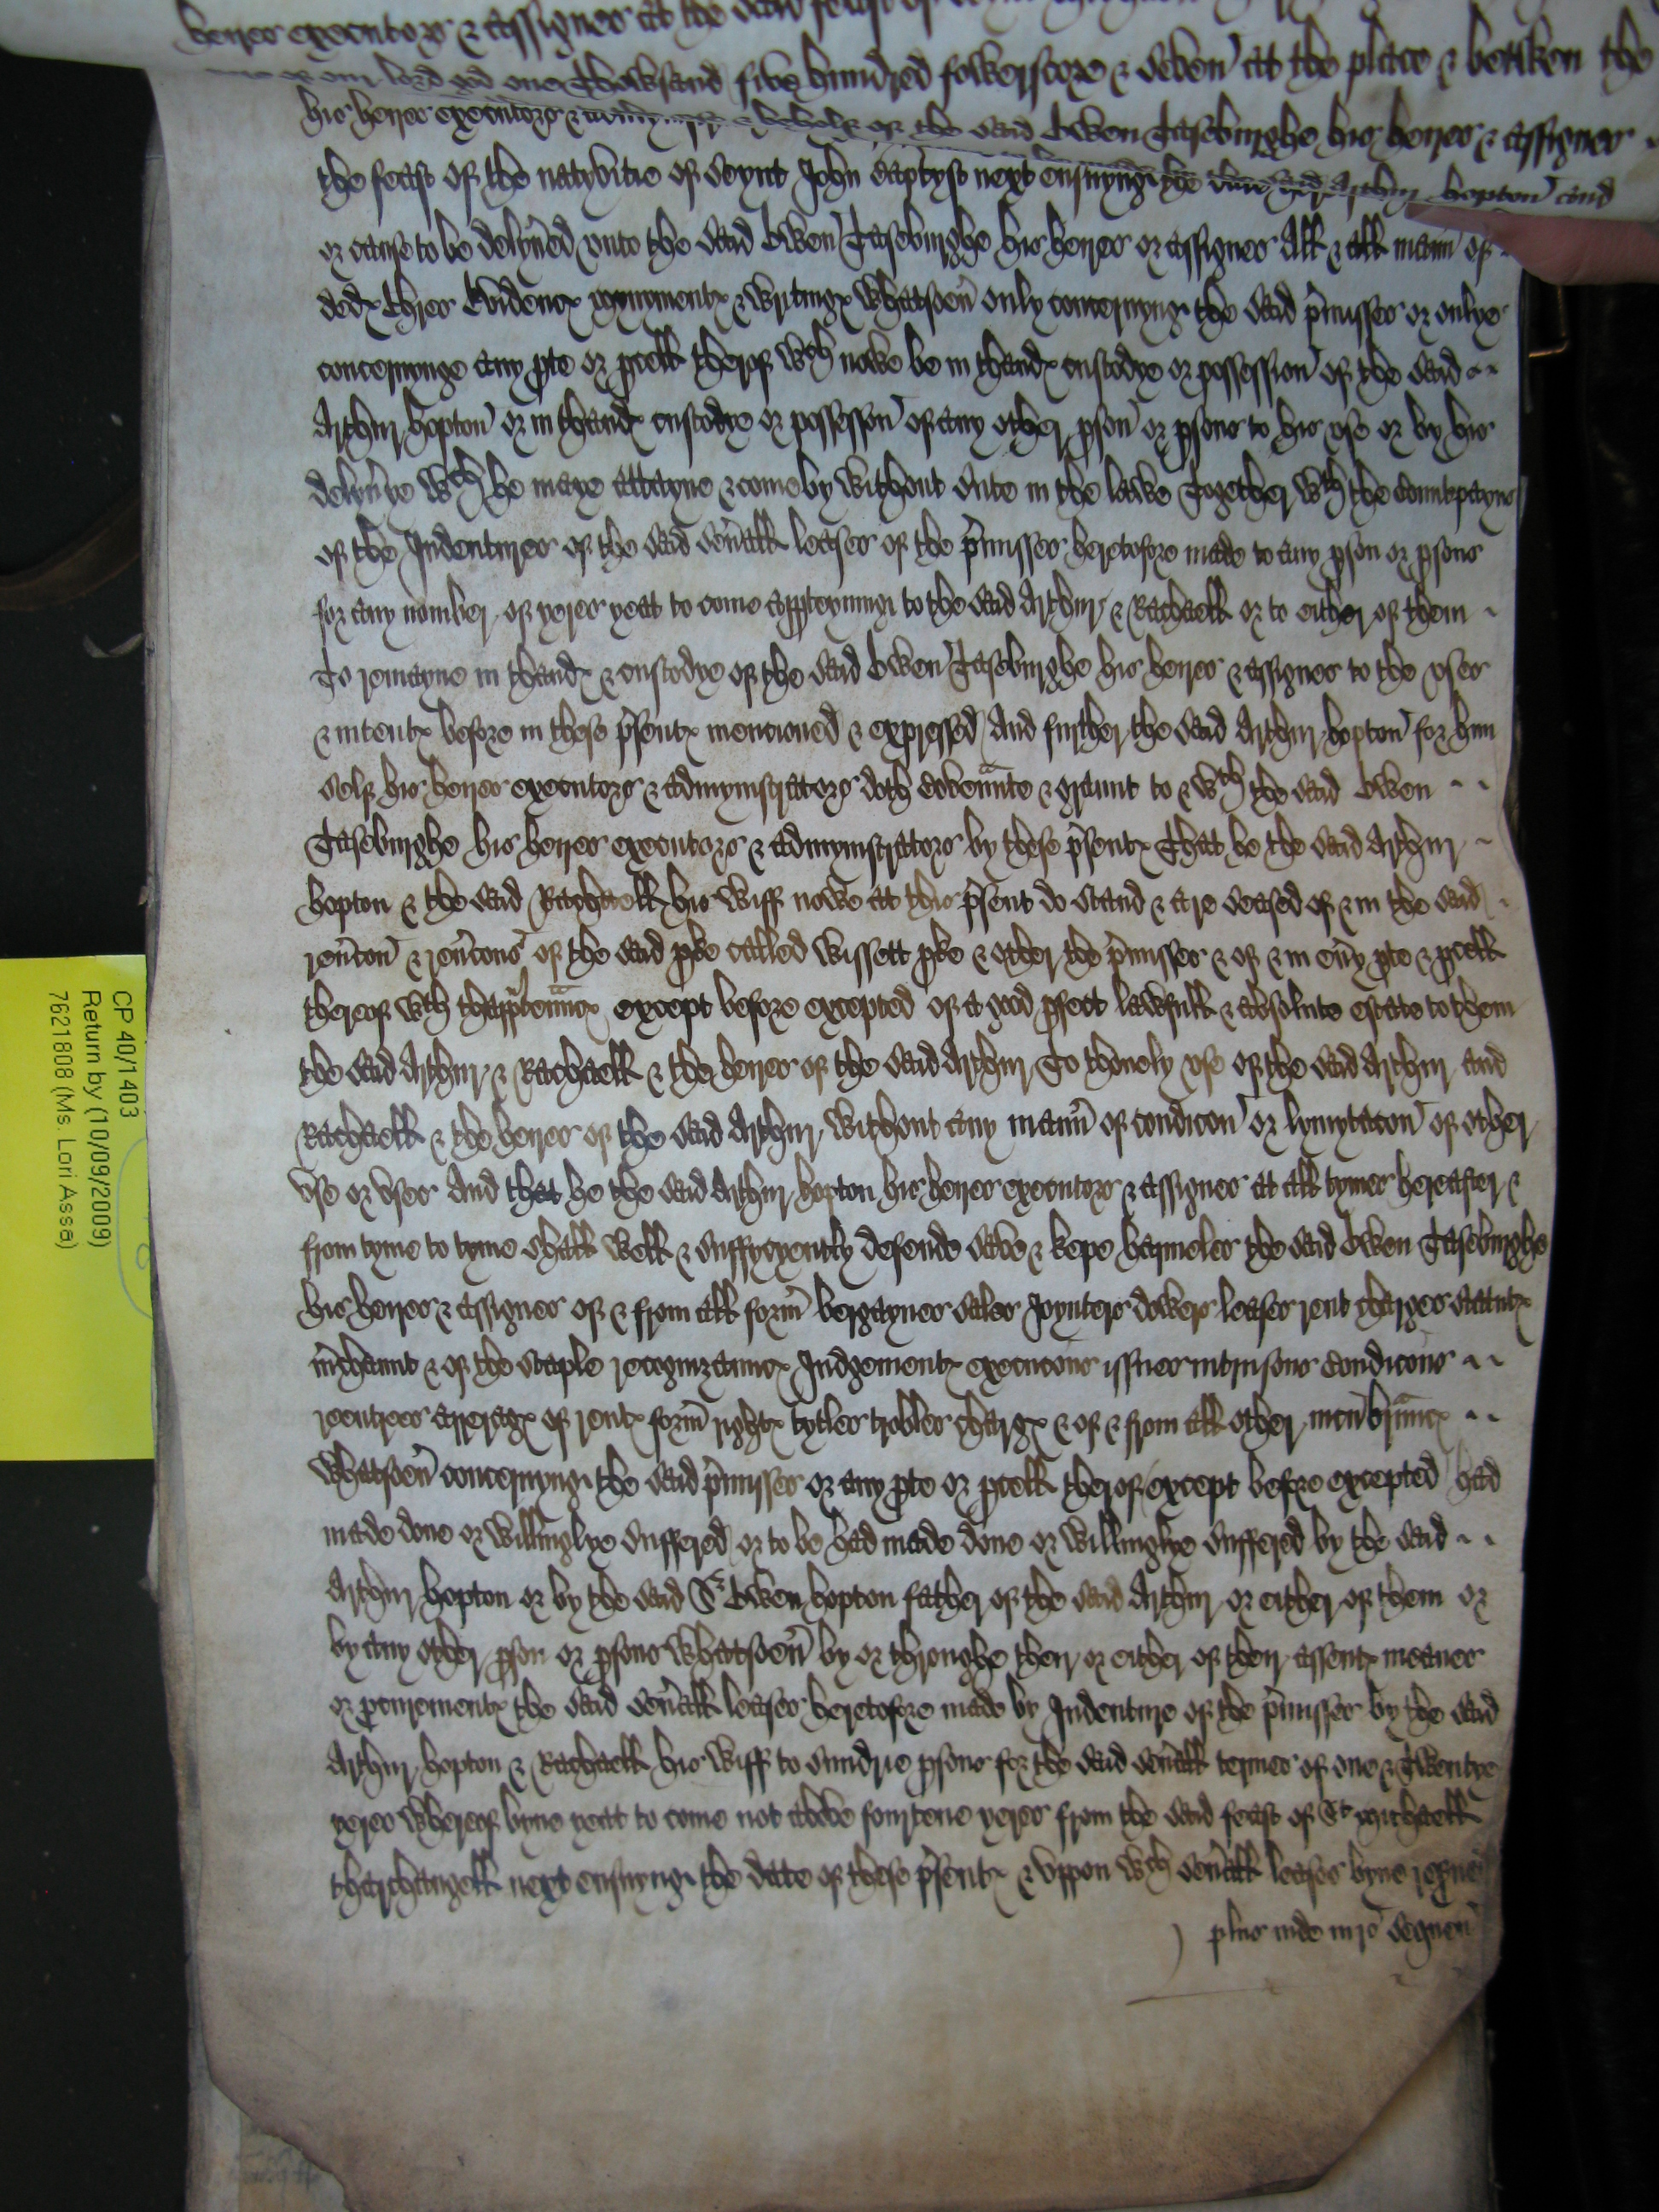 heires executors & assignes att the said feast of
our lord god one Thowsand five hundred fowerscore & seven att the place & betwken the
his heires executors & behalf of the said Owen Taseburghe his heires & assignes
the feast of the natyvitie of Seynt John baptyst next ensuynge the said Arthur hopton and
or cause to be delyvred unto the said Owen Taseburghe his heires or assignes All & all maner of
dedes chres Evidences mynyments & writings whatsoever only concernyng the said pmisses or onlye
concernynge any pte or pcell therof wch nowe be in thands custodye or possession of the said
Arthur hopton or in thands custodye or possession of any other pson or psons to his use or by his
delyvrye wch he maye attayne & come by without suite in the lawe Together wth the countrpaynes
of the Indentures of the said sevrall leases of the pmisses heretofore made to any pson or psons
for any nomber of yeres yeat to come appteynyng to the said Arthur & Rachaell or to either of them
To remayne in thands & custodye of the said Owen Taseburghe his heires & assignes to the uses
& intents before in these psents mencioned & expressed And further the said Arthur hopton for hym
self his heires executors & admynistrators doth covennte & graunt to & wth the said Owen
Taseburghe his heires executors & admynistrators by these psents That he the said Arthur
hopton & the said Rachaell his wiff nowe at this psent do stand & are seased of & in the said
revcon & revcons of the said pke called wissett pke & other the pmisses & of & in evry pte & pcell
therof wth thapptennces except before excepted of a good pfect lawfull & absolute estate to them
the said Arthur & Rachaell & the heires of the said Arthur To thonely use of the said Arthur and
Rachaell & the heires of the said Arthur without any maner of condicon or lymytacon of other
use or uses And that he the said Arthur hopton his heires executors & assignes at all tymes hereafter &
from tyme to tyme shall well & suffycyently defende save & kepe harmeles the said Owen Tasebughe
his heires & assignes of & from all formr bergaynes sales Joynters dowers leases rent charges statuts
mrchaunt & of the staple recognizaunces Judgements execucons issues intrusions condicons
reentrees arerages of rents formr rights tytles trobles charges & of & from all other incumbrnnces
whatsoevr concernynge the said pmisses or any pte or pcell therof except before excepted had
made done or willinglye suffered or to be had made done or willinglye suffered by the said
Arthur hopton or by the said Sr Owen hopton father of the said Arthur or either of them or
by any other pson or psons whatsoevr by or throughe their or either of their assents meanes
or pcurements the said sevrall leases heretofore made by Indenture of the pmisses by the said
Arthur hopton & Rachaell his wiff to sundrie psons for the said sevrall termes of one & Twentye
yeres wherof byne yeat to come not above fourtene yeres from the said feast of St michaell
tharchangell next ensuynge the date of these psents & uppon wch sevrall leases byne resrved
plus inde in ro sequen
CP 40/1403
Return by (10/09/2009)
7621808 (Ms. Lori Assa)